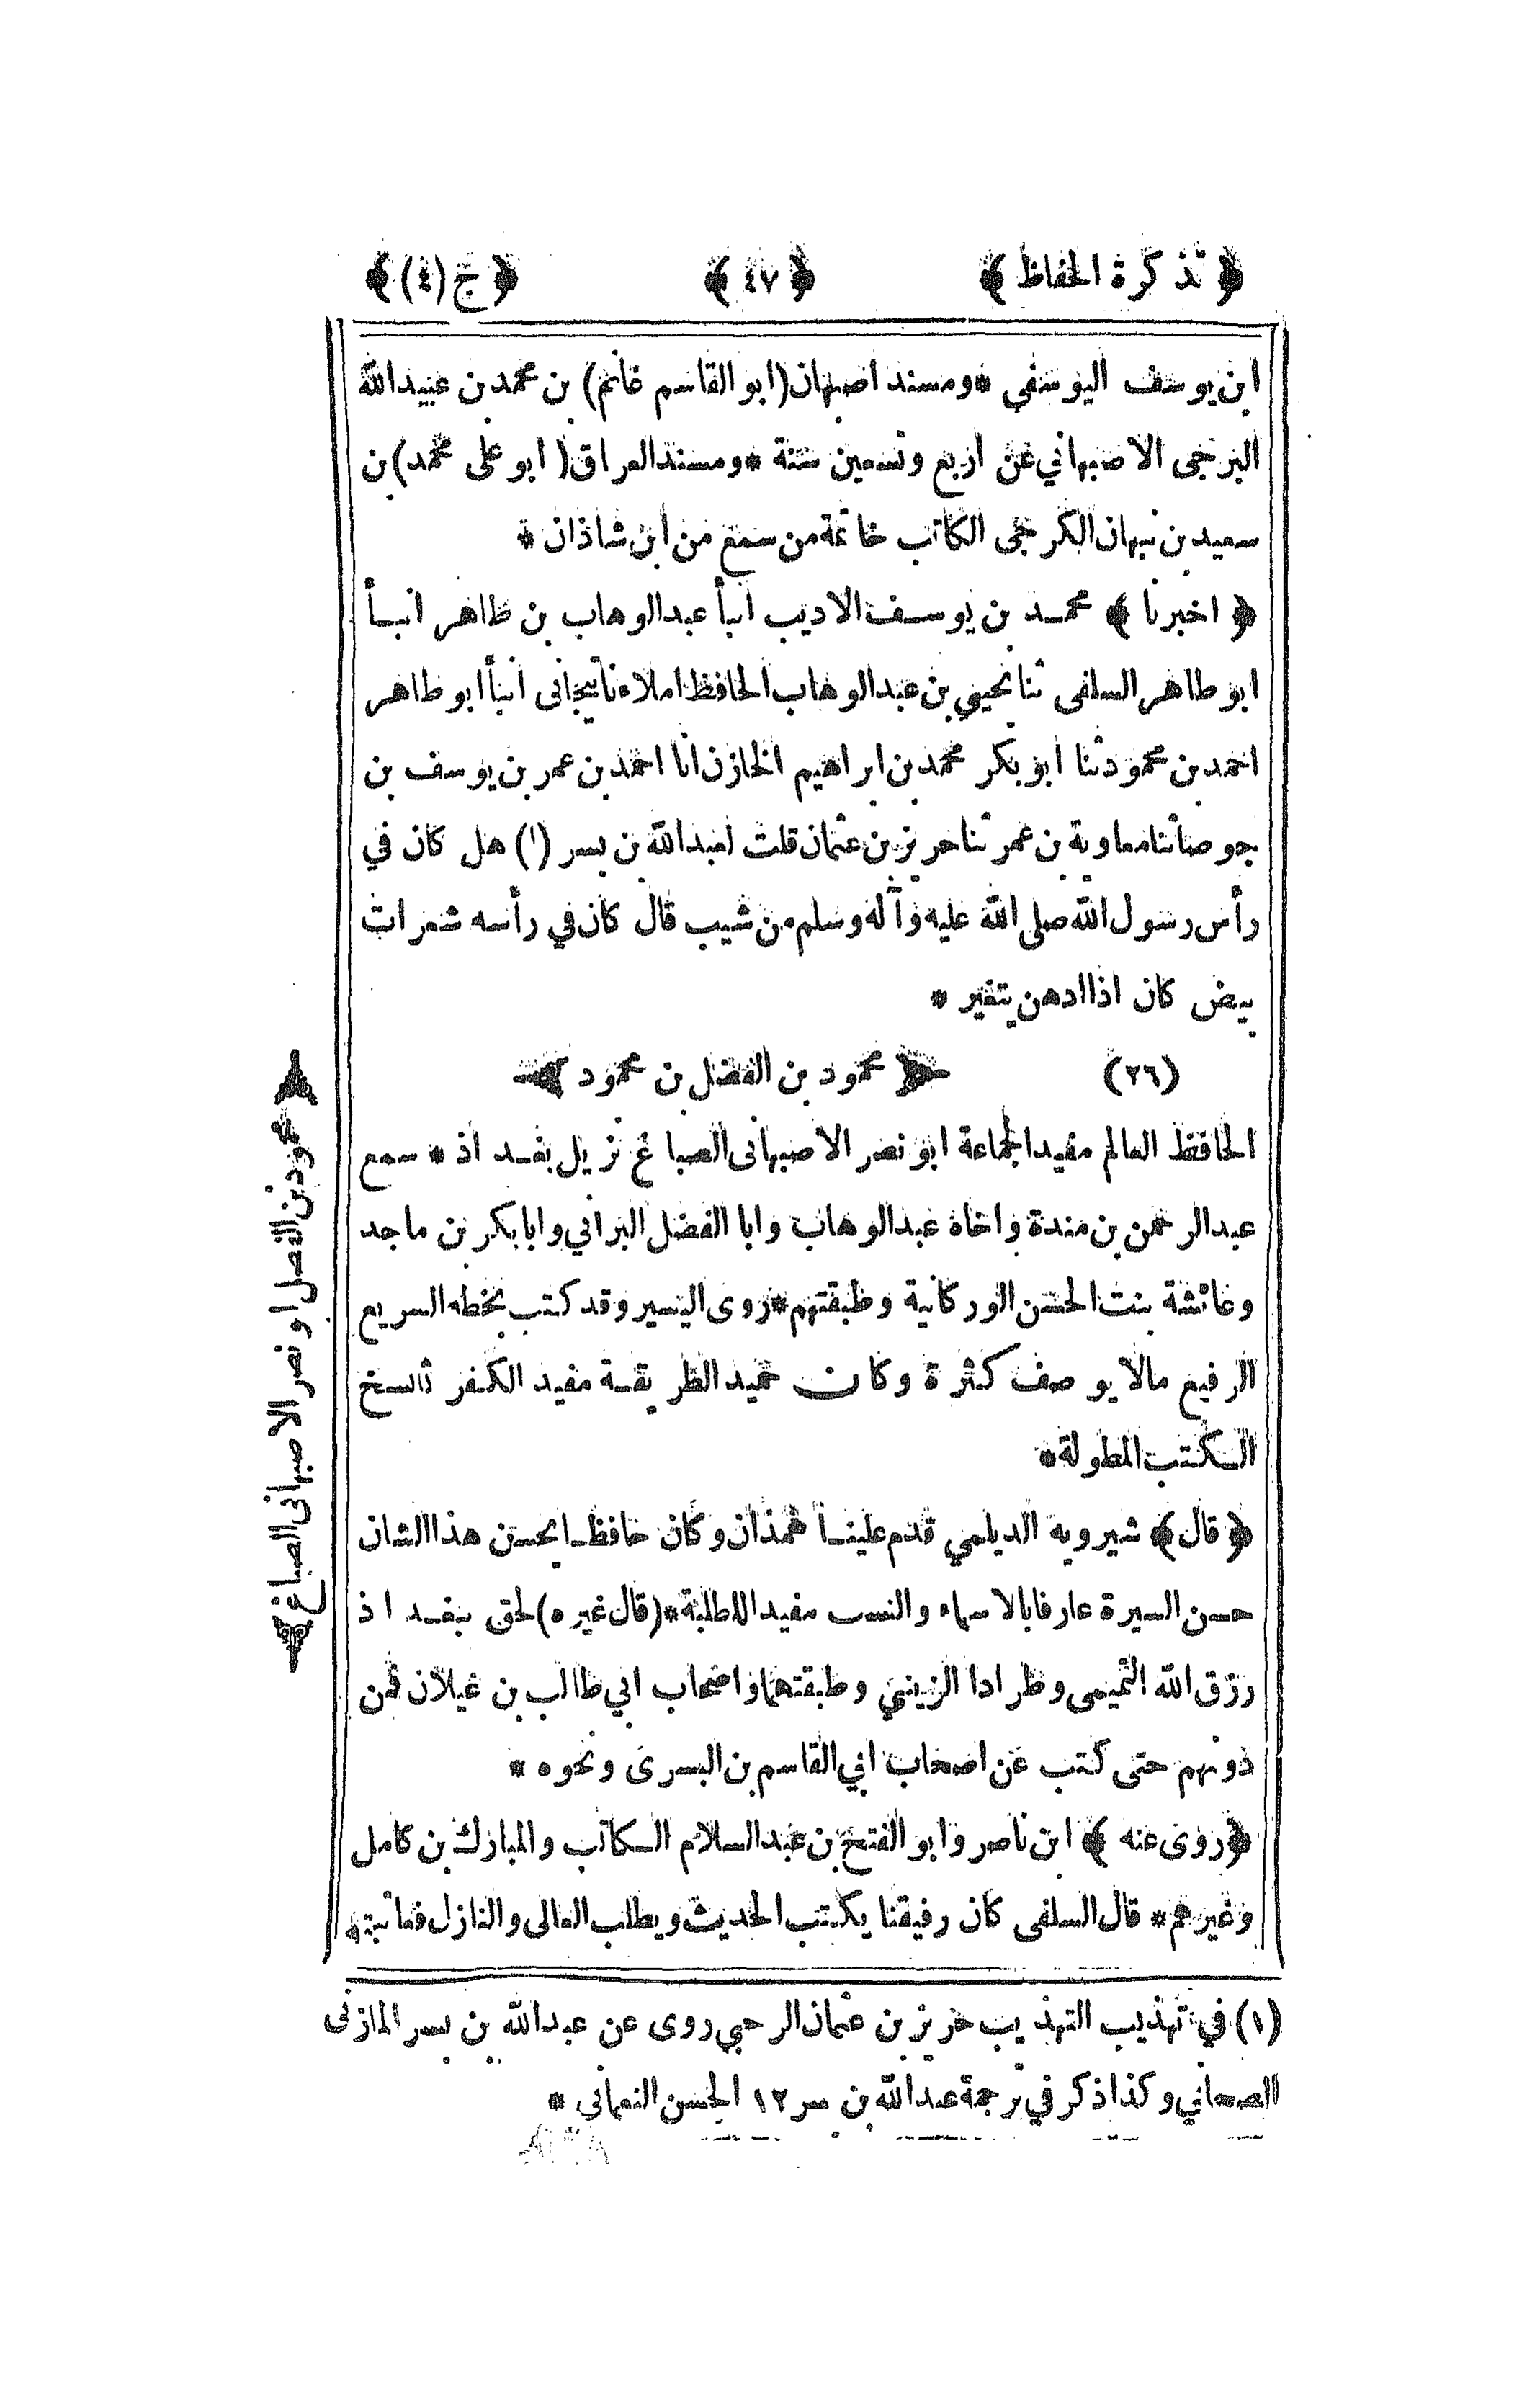 ﴿ تذكرة الحفاظ ﴾ ﴿ ٤٧ ﴾ ﴿ ج (٤) ﴾
ابن يوسف اليوسفي * ومسند اصبهان (ابو القاسم غانم) بن محمد بن عبيدالله
البرجى الاصبهاني عن اربع وتسعين سنة * ومسند العراق (ابو على محمد) بن
سعيد بن نبهان الكرخى الكاتب خاتمة من سمع من ابن شاذان *
﴿ اخبرنا ﴾ محمد بن يوسف الاديب انبأ عبدالوهاب بن ظاهر انبأ
ابو طاهر السلفى ثنا يحيى بن عبدالوهاب الحافظ املاء انبأ ابو طاهر
احمد بن محمود ثنا ابو بكر محمد بن ابراهيم الخازن انا احمد بن عمر بن يوسف بن
جوصا ثنا معاوية بن عمر ثنا حريز بن عثمان قلت لعبدالله بن بسر (١) هل كان في
رأس رسول الله صلى الله عليه وآله وسلم من شيب قال كان في رأسه شعرات
بيض كان اذا ادهن يتغير *
(٢٦) ﴿ محمود بن الفضل بن محمود ﴾
الحافظ العالم مفيد الجماعة ابو نصر الاصبهانى الصباغ نزيل بغداذ * سمع
عبدالرحمن بن مندة واخاه عبدالوهاب وابا الفضل البزاني وابابكر بن ماجد
وعائشة بنت الحسن الوركانية وطبقتهم * روى اليسير وقد كتب بخطه السريع
الرفيع مالا يوصف كثرة وكان حميد الطريقة مفيد الكفر ثالسخ
الكتب المطولة *
﴿ قال ﴾ شيرويه الديلمي قدم علينا همذان وكان حافظا يحسن هذا الشان
حسن السيرة عارفا بالاسماء والنسب مفيدا لطلبة * (قال غيره) لحق ببغداذ
رزق الله التميمى وطرادا الزينبي وطبقتهما واصحاب ابي طالب بن غيلان فمن
دونهم حتى كتب عن اصحاب ابي القاسم بن البسرى ونحوه *
﴿ روى عنه ﴾ ابن ناصر وابو الفتح بن عبدالسلام الكاتب والمبارك بن كامل
وغيرهم * قال السلفى كان رفيقنا يكتب الحديث ويطلب العالى والنازل فعاتبته
(١) في تهذيب التهذيب حريز بن عثمان الرحبي روى عن عبدالله بن بسر المازنى
الصحابي وكذا ذكر في ترجمة عبدالله بن بسر ١٢ الحسن النعماني *
محمود بن الفضل ابو نصر الاصبهانى الصباغ